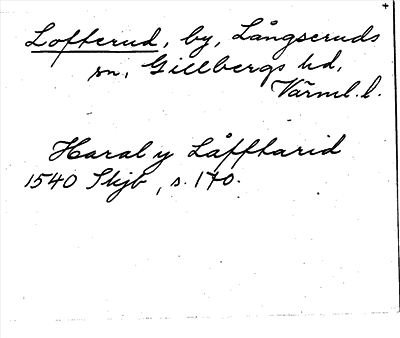 Lofterud, by, Långseruds
sn, Gillbergs hd,
Värml. l.
Haral y Låfftarid
1540 Skjb, s. 170.